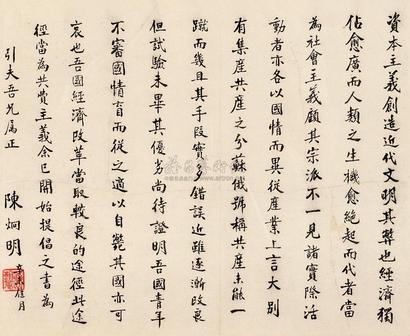 資本主義創造近代文明其弊也經濟獨
佔愈廣而人類之生機愈絕起而代者當
為社會主義顧其宗派不一見諸實際活
動者亦各以國情而異從產業上言大別
有集產共產之分蘇俄號稱共產未能一
蹴而幾且其手段實多錯誤近雖逐漸改良
但試驗未畢其優劣尚待證明吾國青年
不審國情盲而從之適以自斃其國亦可
哀也吾國經濟改革當取較良的途徑此途
經當為共費主義余已開始提倡之書為
引夫吾兄屬正
陳炯明
辛未佳月